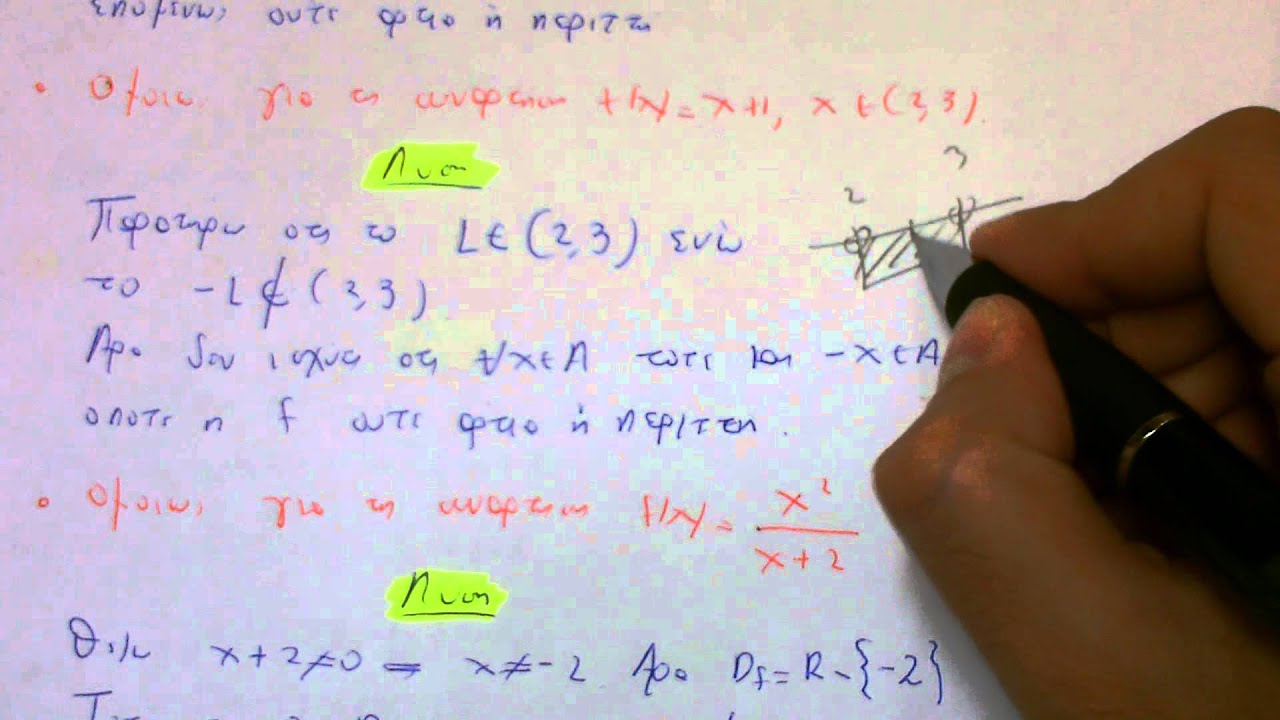 επομένως ούτε άρτιο ή περιττή
• Ομοίως για τη συνάρτηση f(x)=x+1, x∈(2,3).
Λύση
2 3
Παρατηρώ ότι το L∈(2,3) ενώ
το -L∉(2,3)
Άρα δεν ισχύει ότι ∀x∈A τότε και -x∈A
οπότε η f ούτε άρτιο ή περιττή.
• Ομοίως για τη συνάρτηση f(x)= x²/(x+2)
Λύση
Θέλω x+2≠0 = x≠-2 Άρα Df=R-{-2}